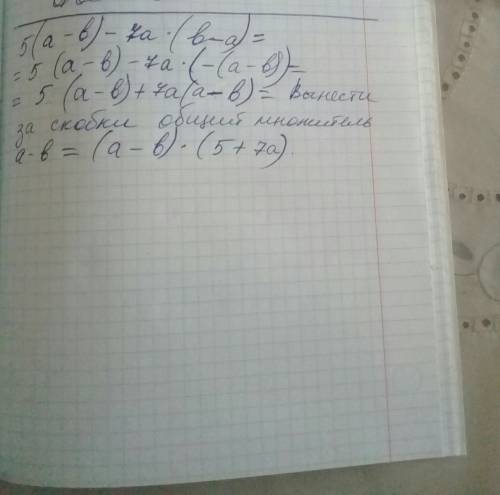 5(a-в)-7a·(в-a)=
=5(a-в)-7a·(-(a-в))=
=5(a-в)+7a(a-в)= Вынести
за скобки общий множитель
a-в=(a-в)·(5+7a).